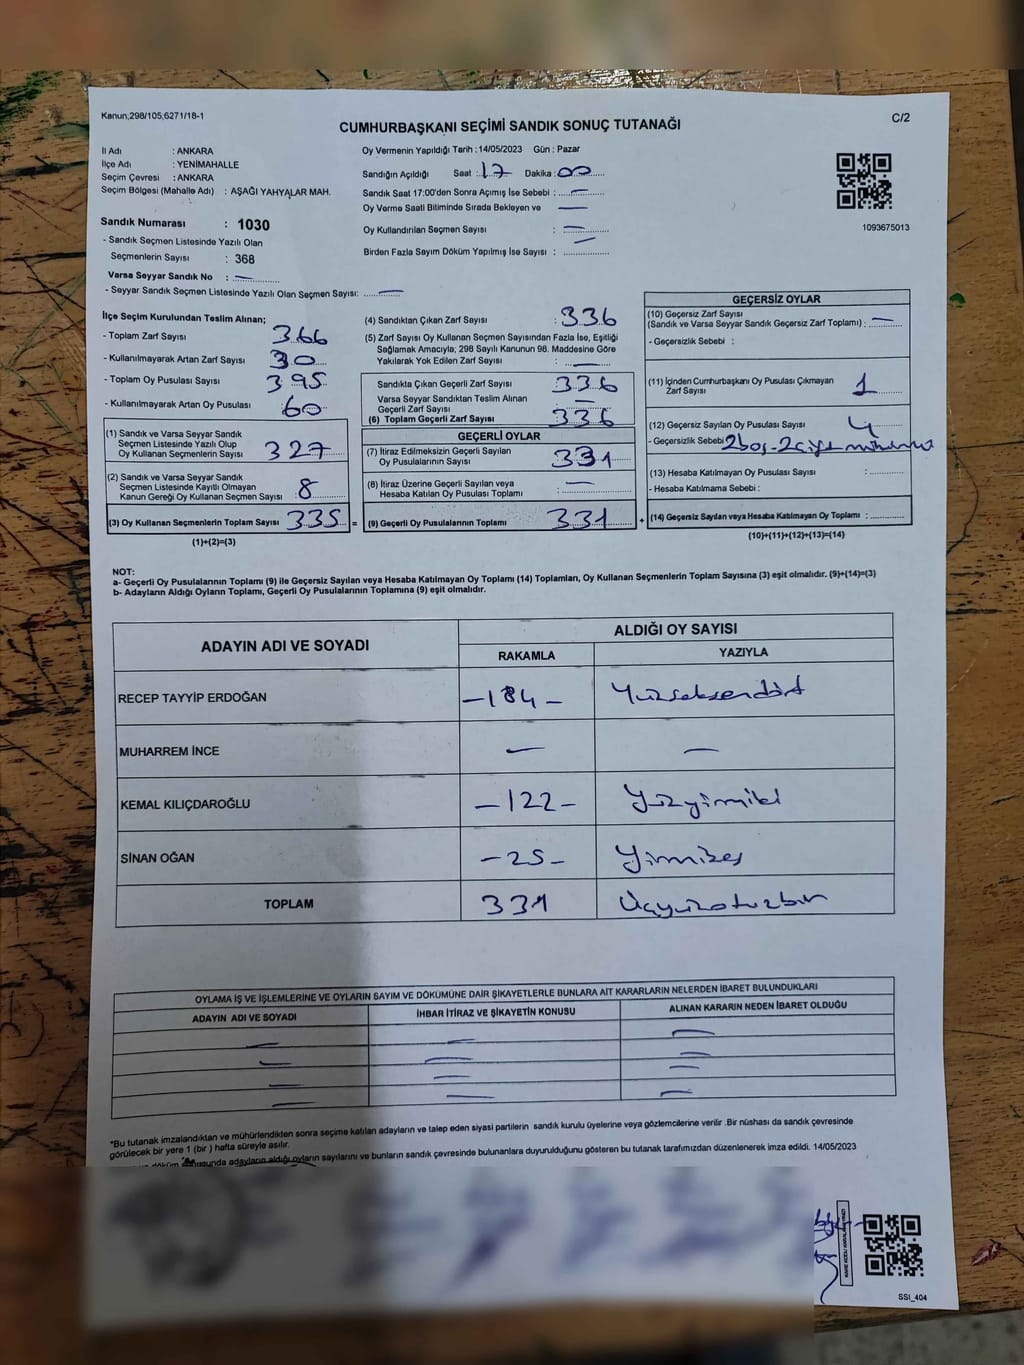 Kanun;298/105,6271/18-1
C/2
CUMHURBAŞKANI SEÇİMİ SANDIK SONUÇ TUTANAĞI
İl Adı : ANKARA
İlçe Adı : YENİMAHALLE
Seçim Çevresi : ANKARA
Seçim Bölgesi (Mahalle Adı) : AŞAĞI YAHYALAR MAH.
Sandık Numarası : 1030
- Sandık Seçmen Listesinde Yazılı Olan
Seçmenlerin Sayısı : 368
Varsa Seyyar Sandık No : —
- Seyyar Sandık Seçmen Listesinde Yazılı Olan Seçmen Sayısı: —
Oy Vermenin Yapıldığı Tarih : 14/05/2023 Gün : Pazar
Sandığın Açıldığı Saat : 17 Dakika : 00
Sandık Saat 17:00'den Sonra Açımış İse Sebebi : —
Oy Verme Saati Bitiminde Sırada Bekleyen ve —
Oy Kullandırılan Seçmen Sayısı : —
Birden Fazla Sayım Döküm Yapılmış İse Sayısı : —
1093675013
İlçe Seçim Kurulundan Teslim Alınan;
- Toplam Zarf Sayısı 366
- Kullanılmayarak Artan Zarf Sayısı 30
- Toplam Oy Pusulası Sayısı 395
- Kullanılmayarak Artan Oy Pusulası 60
(1) Sandık ve Varsa Seyyar Sandık
Seçmen Listesinde Yazılı Olup
Oy Kullanan Seçmenlerin Sayısı 327
(2) Sandık ve Varsa Seyyar Sandık
Seçmen Listesinde Kayıtlı Olmayan
Kanun Gereği Oy Kullanan Seçmen Sayısı 8
(3) Oy Kullanan Seçmenlerin Toplam Sayısı 335 =
(1)+(2)=(3)
(4) Sandıktan Çıkan Zarf Sayısı : 336
(5) Zarf Sayısı Oy Kullanan Seçmen Sayısından Fazla İse, Eşitliği
Sağlamak Amacıyla; 298 Sayılı Kanunun 98. Maddesine Göre
Yakılarak Yok Edilen Zarf Sayısı : —
Sandıkta Çıkan Geçerli Zarf Sayısı 336
Varsa Seyyar Sandıktan Teslim Alınan
Geçerli Zarf Sayısı —
(6) Toplam Geçerli Zarf Sayısı 336
GEÇERLİ OYLAR
(7) İtiraz Edilmeksizin Geçerli Sayılan
Oy Pusulalarının Sayısı 331
(8) İtiraz Üzerine Geçerli Sayılan veya
Hesaba Katılan Oy Pusulası Toplamı —
(9) Geçerli Oy Pusulalarının Toplamı 331 +
GEÇERSİZ OYLAR
(10) Geçersiz Zarf Sayısı
(Sandık ve Varsa Seyyar Sandık Geçersiz Zarf Toplamı) : —
- Geçersizlik Sebebi :
(11) İçinden Cumhurbaşkanı Oy Pusulası Çıkmayan
Zarf Sayısı 1
(12) Geçersiz Sayılan Oy Pusulası Sayısı 4
- Geçersizlik Sebebi 2boş-2
(13) Hesaba Katılmayan Oy Pusulası Sayısı :
- Hesaba Katılmama Sebebi :
(14) Geçersiz Sayılan veya Hesaba Katılmayan Oy Toplamı :
(10)+(11)+(12)+(13)=(14)
NOT:
a- Geçerli Oy Pusulalarının Toplamı (9) ile Geçersiz Sayılan veya Hesaba Katılmayan Oy Toplamı (14) Toplamları, Oy Kullanan Seçmenlerin Toplam Sayısına (3) eşit olmalıdır. (9)+(14)=(3)
b- Adayların Aldığı Oyların Toplamı, Geçerli Oy Pusulalarının Toplamına (9) eşit olmalıdır.
ADAYIN ADI VE SOYADI
ALDIĞI OY SAYISI
RAKAMLA YAZIYLA
RECEP TAYYİP ERDOĞAN -184- Yüzseksendört
MUHARREM İNCE — —
KEMAL KILIÇDAROĞLU -122- Yüzyirmiiki
SİNAN OĞAN -25- Yirmibeş
TOPLAM 331 Üçyüzotuzbir
OYLAMA İŞ VE İŞLEMLERİNE VE OYLARIN SAYIM VE DÖKÜMÜNE DAİR ŞİKAYETLERLE BUNLARA AİT KARARLARIN NELERDEN İBARET BULUNDUKLARI
ADAYIN ADI VE SOYADI İHBAR İTİRAZ VE ŞİKAYETİN KONUSU ALINAN KARARIN NEDEN İBARET OLDUĞU
— — —
— — —
— — —
— — —
*Bu tutanak imzalandıktan ve mühürlendikten sonra seçime katılan adayların ve talep eden siyasi partilerin sandık kurulu üyelerine veya gözlemcilerine verilir .Bir nüshası da sandık çevresinde
görülecek bir yere 1 (bir ) hafta süreyle asılır.
adayların aldığı oyların sayılarını ve bunların sandık çevresinde bulunanlara duyurulduğunu gösteren bu tutanak tarafımızdan düzenlenerek imza edildi. 14/05/2023
SSI_404